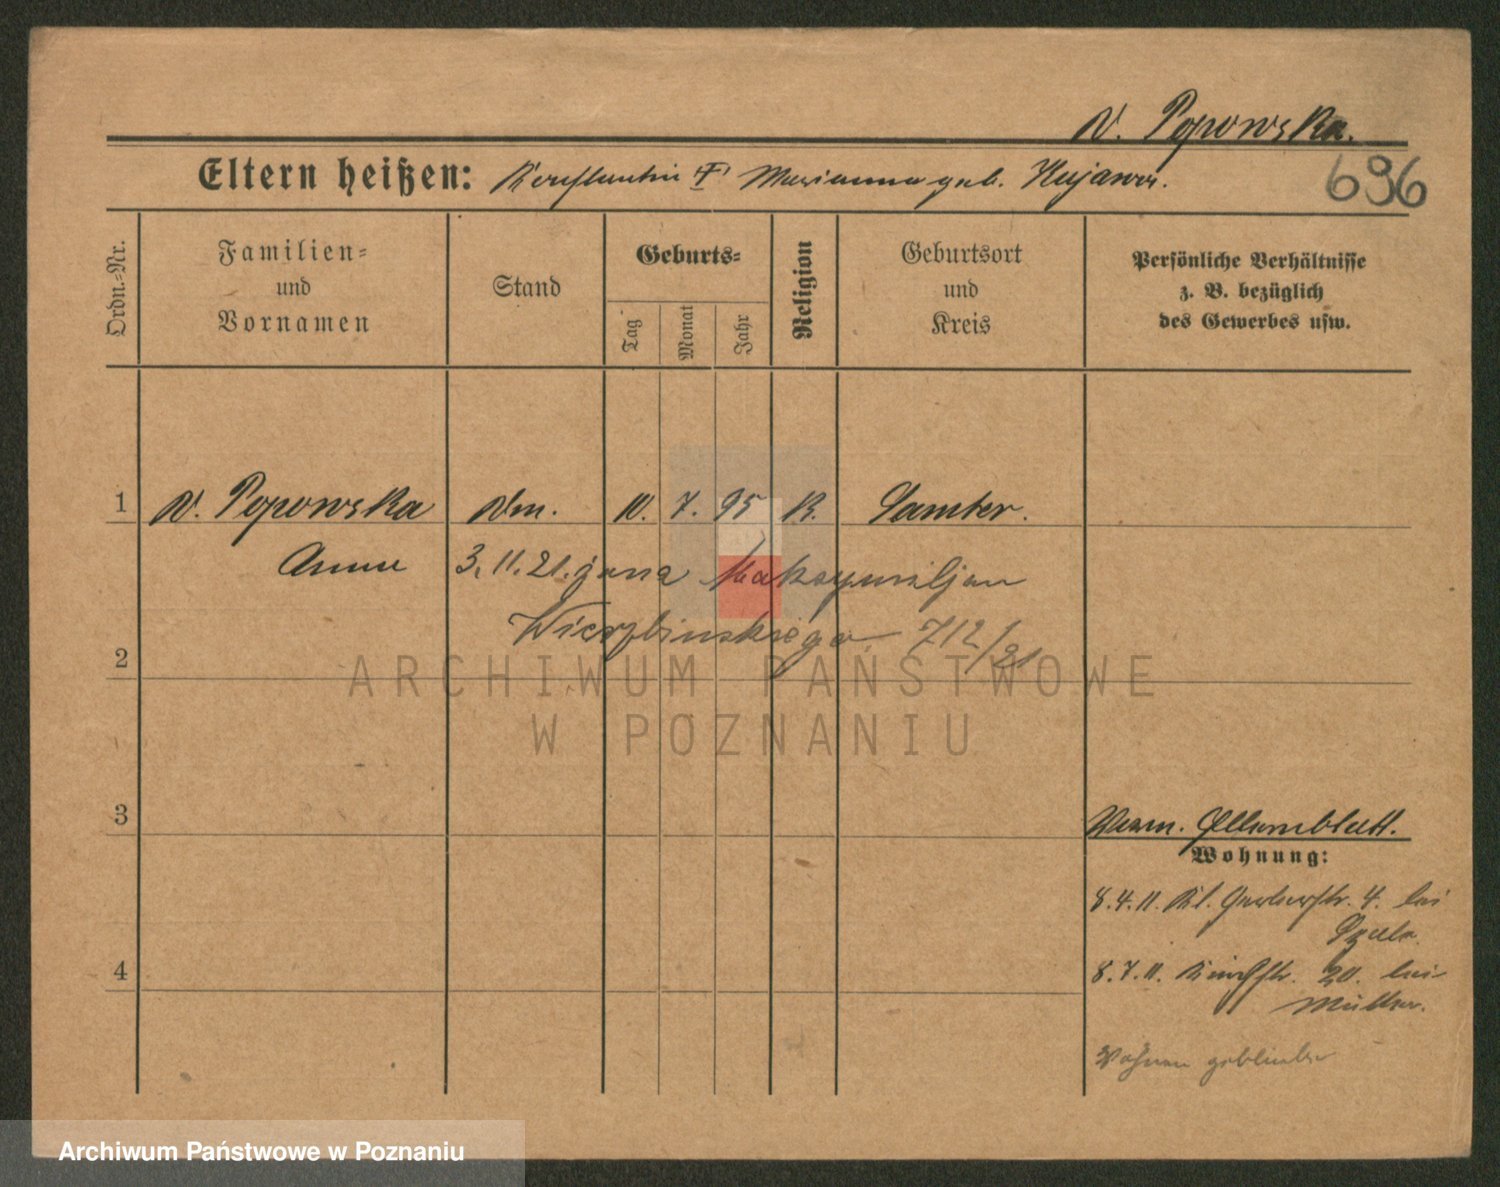 v. Popowska.
696
Eltern heißen: Konstantin † Marianna geb. Kujawa.
Ordn.-Nr.
Familien-
und
Vornamen
Stand
Geburts-
Tag
Monat
Jahr
Religion
Geburtsort
und
Kreis
Persönliche Verhältnisse
z. B. bezüglich
des Gewerbes usw.
1 v. Popowska 10. 7. 95 K. Samter.
Anna 3.11.21. żona Maksymiljan
Wierzbinskiego 712/21
2
3
Elternblatt.
Wohnung:
8.4.11. Kl. Gerberstr. 4. bei
Szula.
4
8.7.11. 20. bei
Müller.
ARCHIWUM PAŃSTWOWE
W POZNANIU
Archiwum Państwowe w Poznaniu